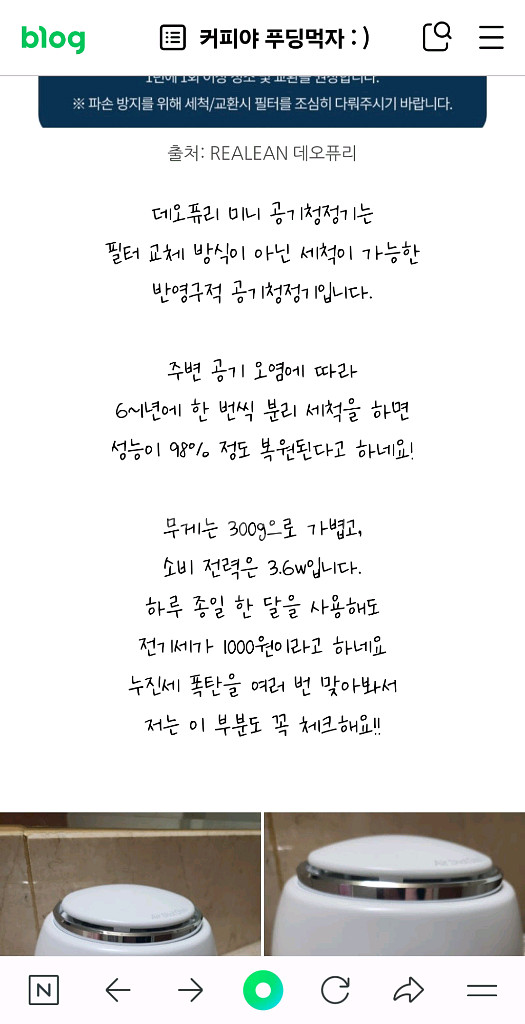 blog
커피야 푸딩먹자 : )
1년에 1회 이상 청소 및 교환을 권장합니다.
※ 파손 방지를 위해 세척/교환시 필터를 조심히 다뤄주시기 바랍니다.
출처: REALEAN 데오퓨리
데오퓨리 미니 공기청정기는
필터 교체 방식이 아닌 세척이 가능한
반영구적 공기청정기입니다.
주변 공기 오염에 따라
6~1년에 한 번씩 분리 세척을 하면
성능이 98% 정도 복원된다고 하네요!
무게는 300g으로 가볍고,
소비 전력은 3.6w입니다.
하루 종일 한 달을 사용해도
전기세가 1000원이라고 하네요
누진세 폭탄을 여러 번 맞아봐서
저는 이 부분도 꼭 체크해요!!
N